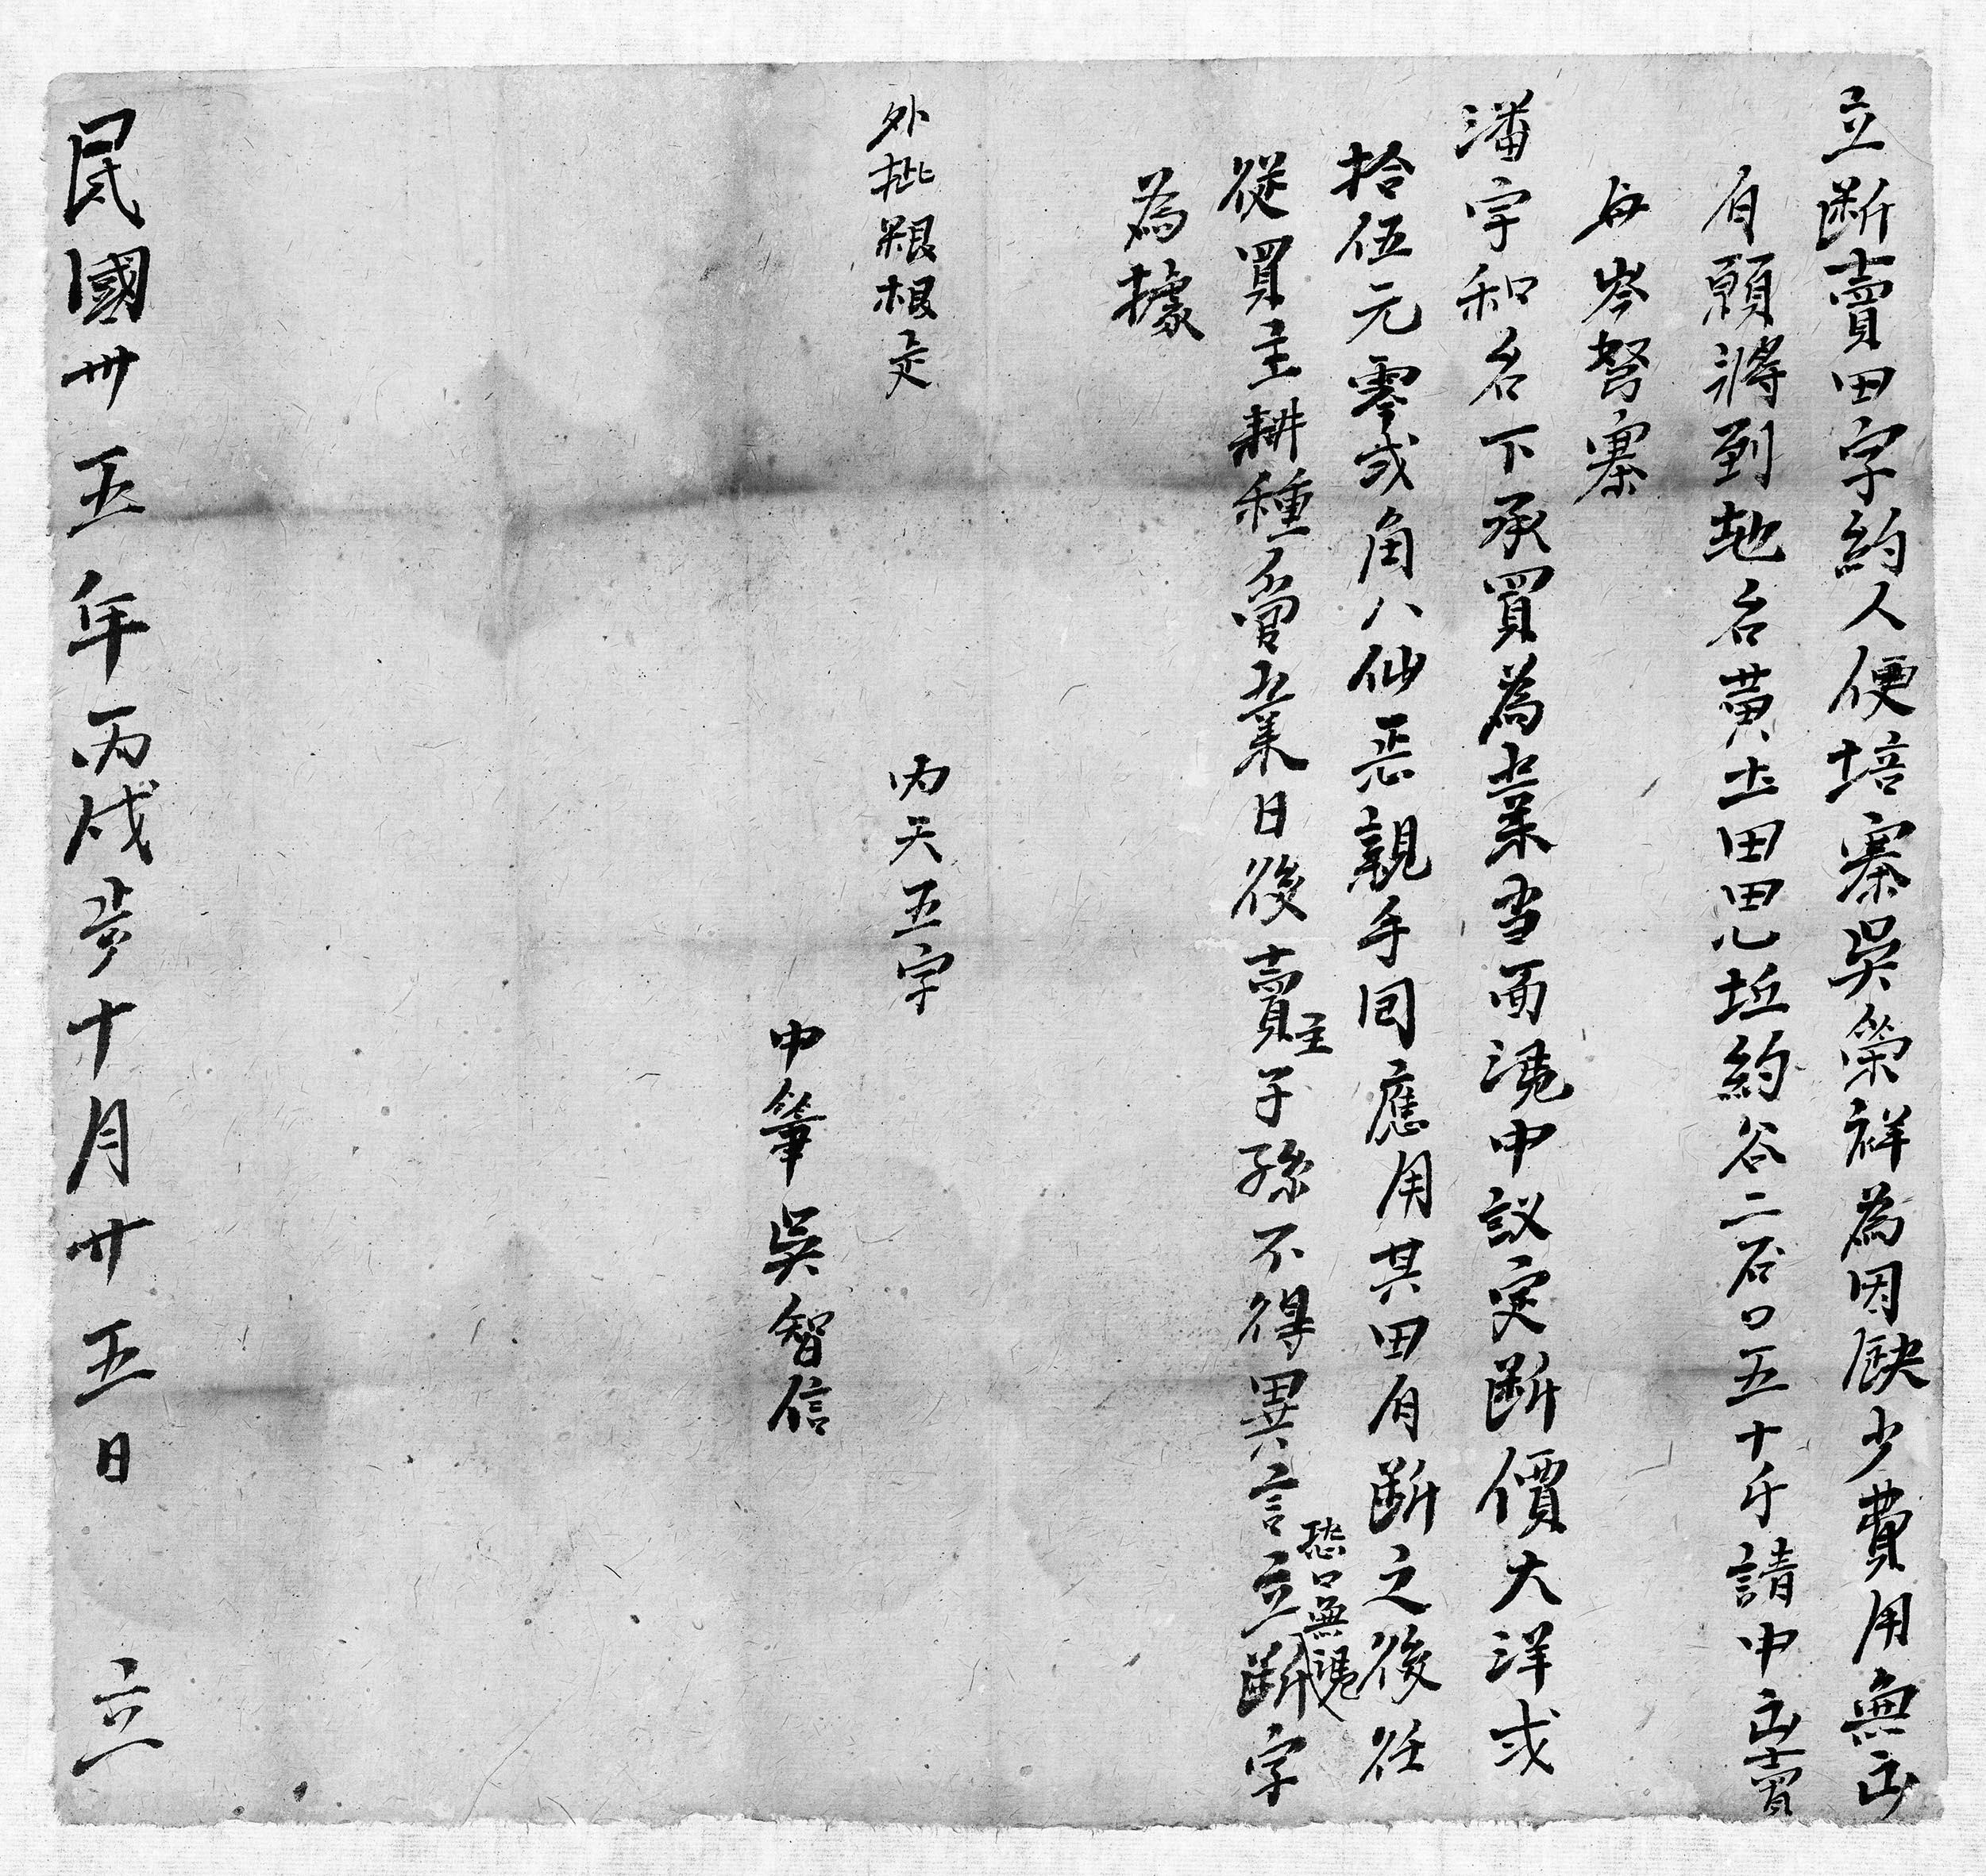 立断賣田字約人便培寨吳榮祥為因缺少費用無出
自願將到地名黃土田田乙坵約谷二石〇五十斤請中出賣
与岑努寨
潘宇和名下承買為業当面憑中議定断價大洋弍
拾伍元零弍角八仙㤙親手囘應用其田自断之後任
從買主耕種管業日後賣主子孫不得異言恐口無憑立断字
為據
外批粮根定
内天五字
中筆吳智信
民國卅五年丙戌岁十月廿五日 立